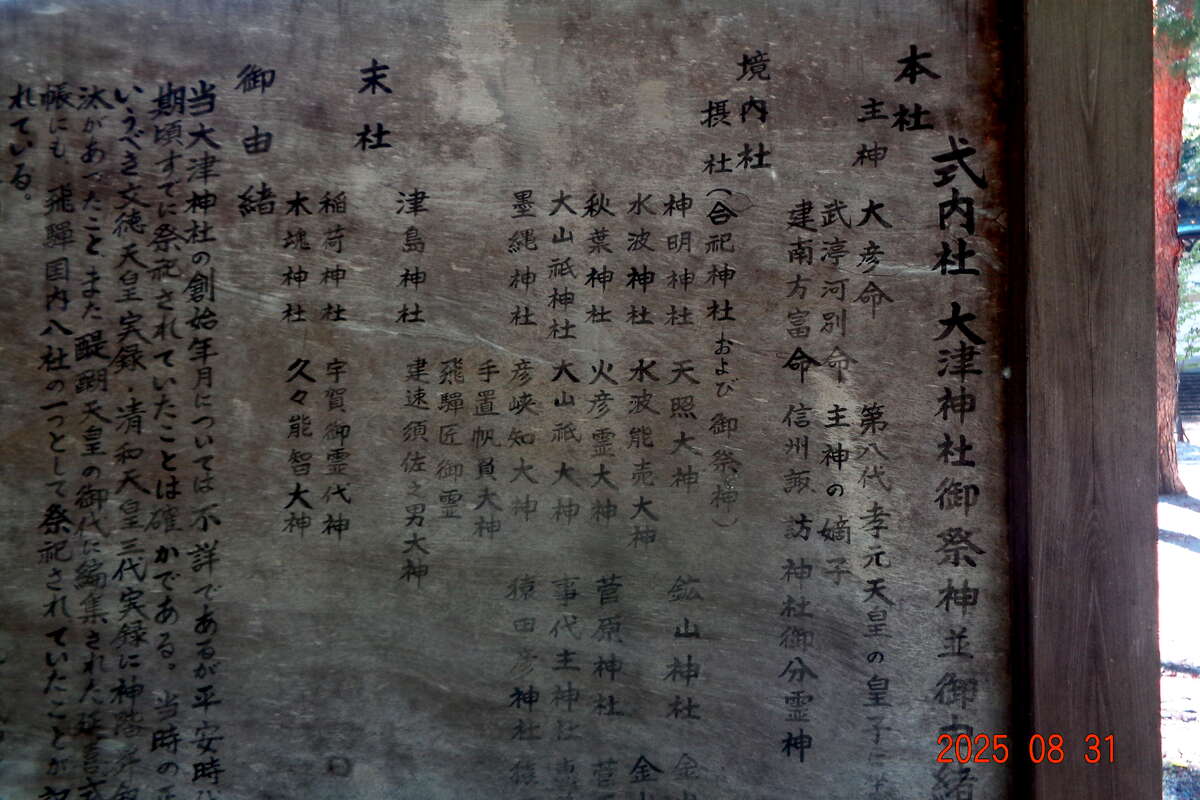 式内社 大津神社御祭神並御由緒
本社
主神 大彦命 第八代孝元天皇の皇子に
武渟河別命 主神の嫡子
建南方富命 信州諏訪神社御分霊神
境内社
摂社(合祀神社および御祭神)
神明神社 天照大神 鉱山神社 金山
水波神社 水波能売大神 金山
秋葉神社 火彦霊大神 菅原神社 菅
大山祇神社 大山祇大神 事代主神社
墨縄神社 彦峡知大神 猿田彦神社 猿
手置帆負大神
飛驒匠御霊
津島神社 建速須佐之男大神
末社
稲荷神社 宇賀御霊代神
木魂神社 久々能智大神
御由緒
当大津神社の創始年月については不詳であるが平安時
期頃すでに祭祀されていたことは確かである。当時の正
いうべき文徳天皇実録・清和天皇三代実録に神階昇叙
汰があったこと、また醍醐天皇の御代に編集された延喜式
帳にも、飛驒国内八社の一つとして祭祀されていたことが記
れている。
2025 08 31